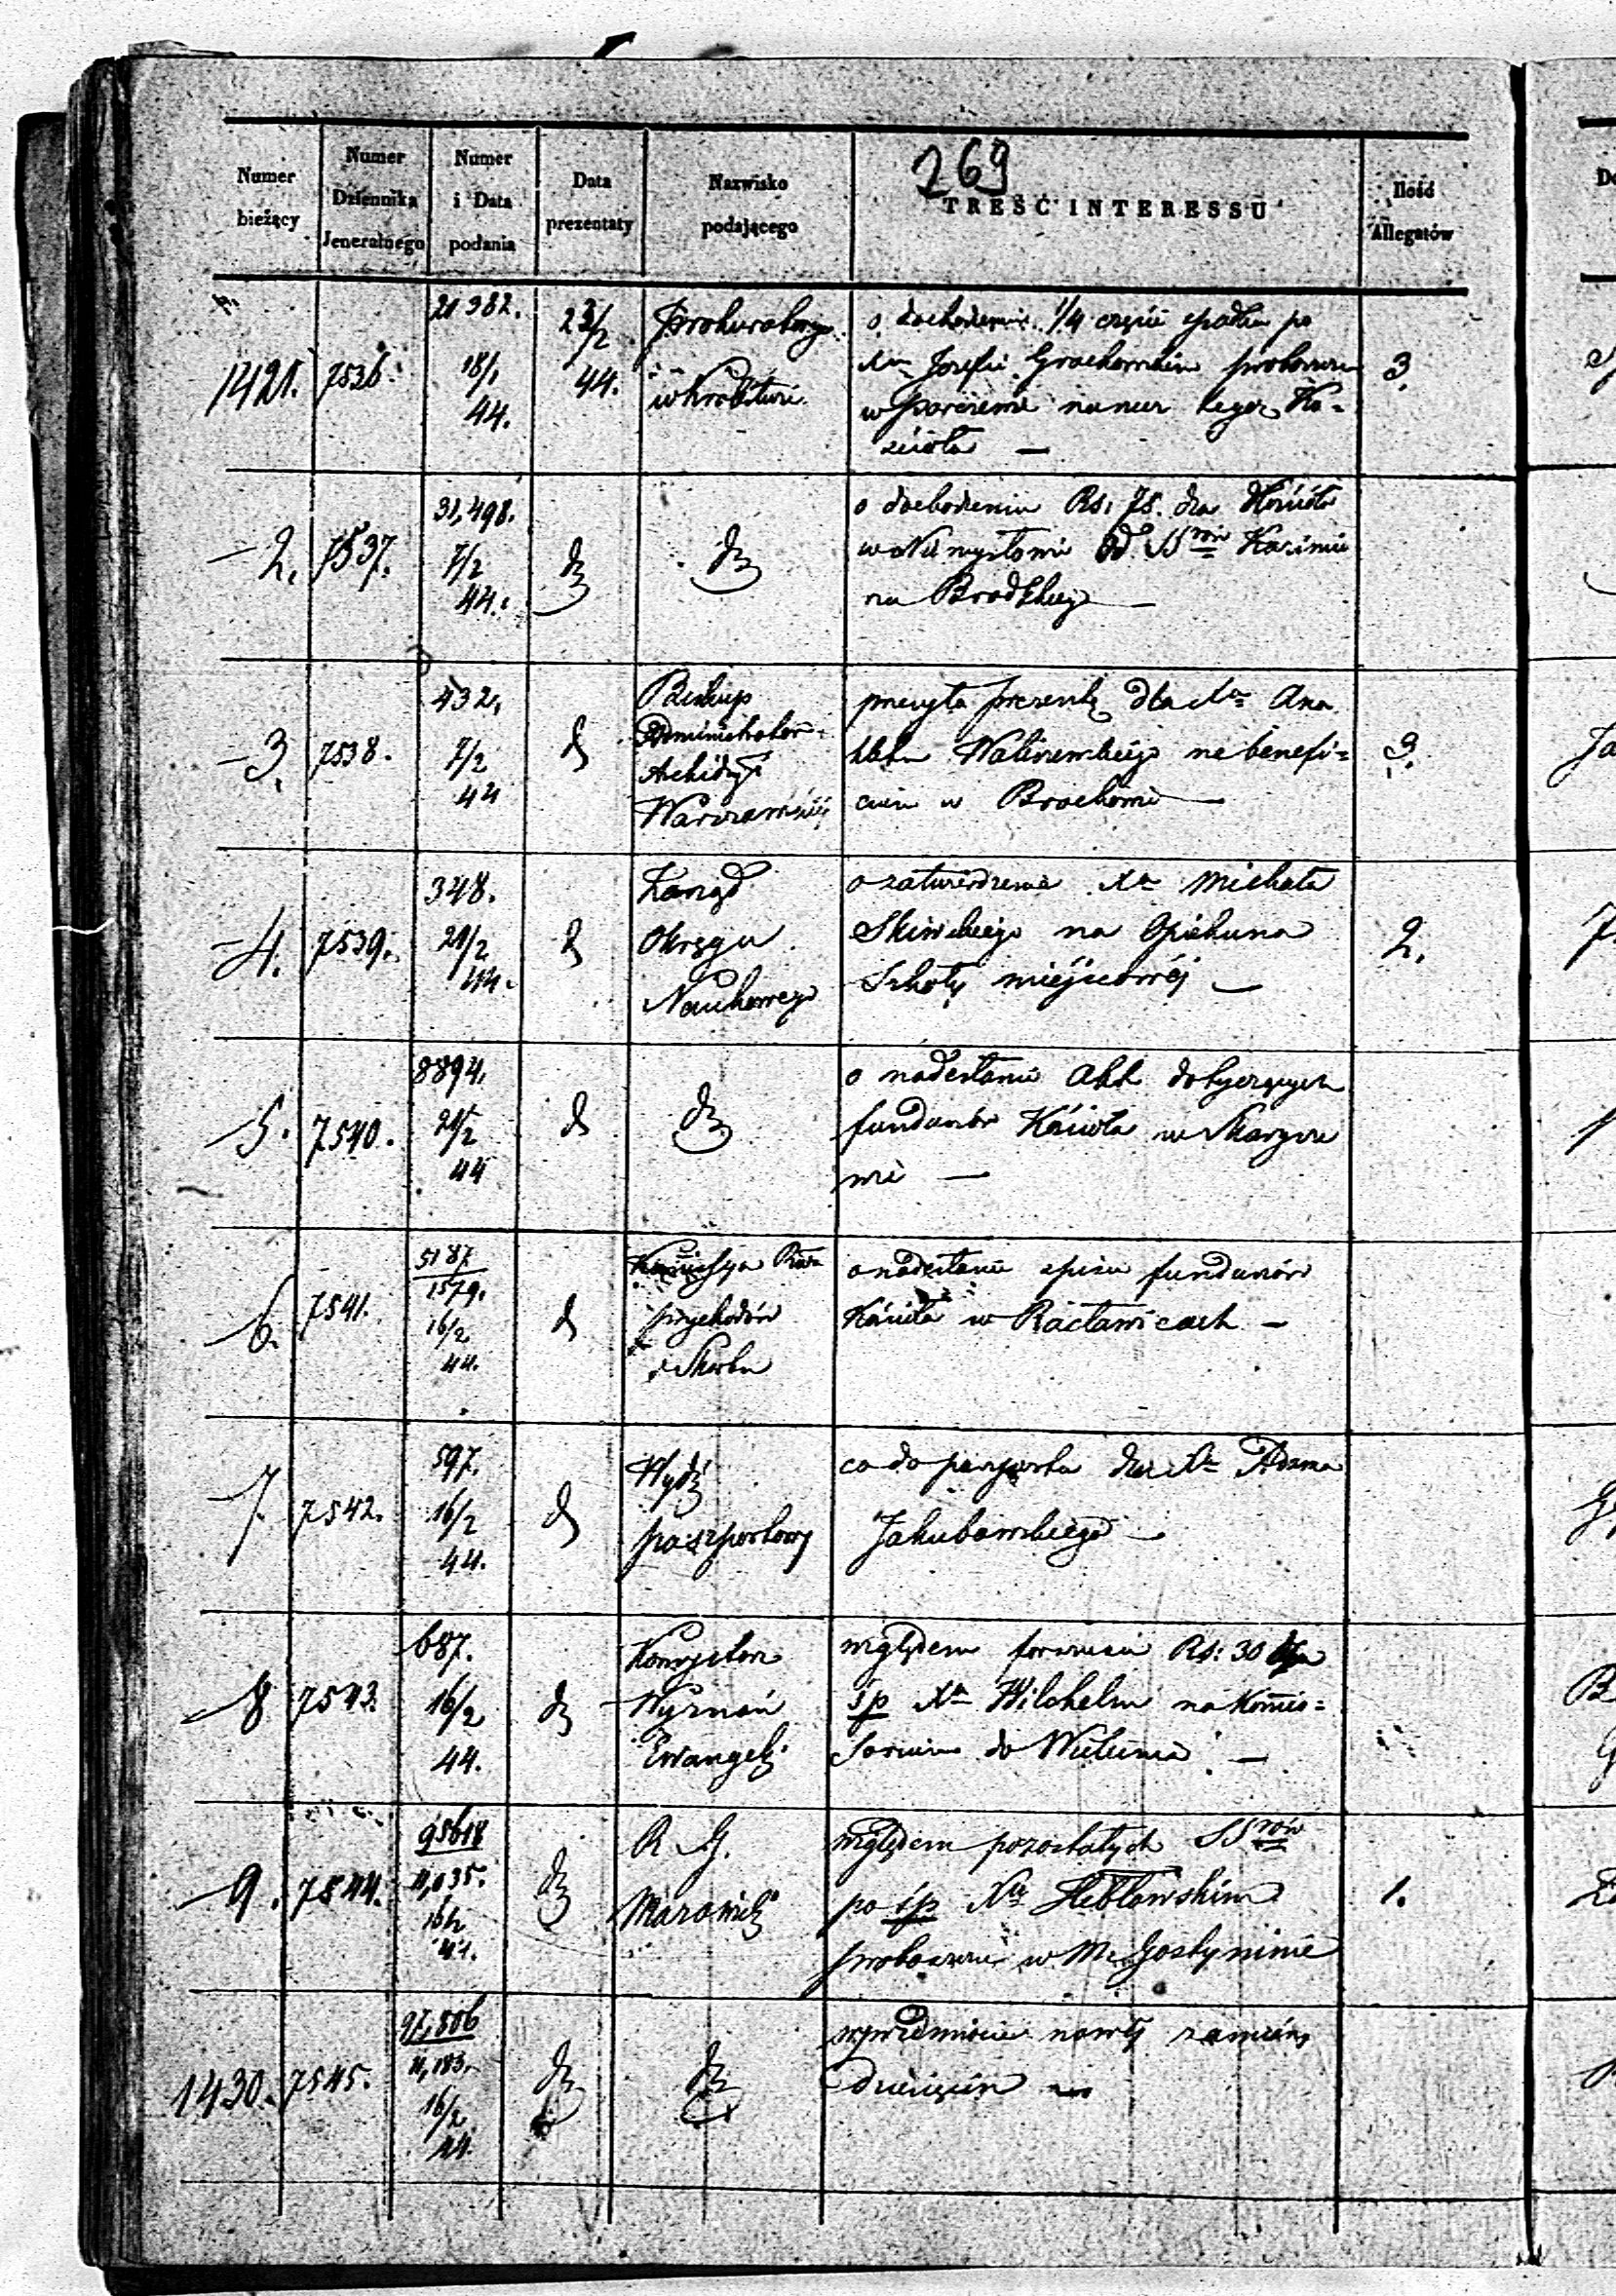 269
Numer bieżący
Numer Dziennika Jeneralnego
Numer i Data podania
Data prezentaty
Nazwisko podającego
TREŚĆ INTERESSU
Ilość Allegatów
1421. 7536. 21382. 18/1 44. 23/2 44. Prokurator
o dochodzenie 1/4 części spadku po
Xu Józefie Grochowskim proboszczu
w na rzecz tegoż Ko=
ścioła — 3.
2. 7537. 31,498. 7/2 44. dto dto
o dochodzeniu Rs. 75. dla Kościoła
w od SSrów Kazimie
rza Brodzkiego —
3. 7538. 432. 7/2 44 d
Biskup
Administrator
Archidyec
Warszawskiej
przesyła prezentę dla Xa Ana
na benefi=
cium w Brochowie — 3.
4. 7539. 348. 21/2 44. d
Zarząd
Okręgu
Naukowego
o zatwierdzenie Xa Michała
Skiwskiego na Opiekuna
Szkoły miejscowéj — 2.
5. 7540. 8894. 21/2 44 d dto
o nadesłanie Akt dotyczących
funduszów Kościoła w Skarzy
wie —
6. 7541. 5187 1579. 16/2 44. d
Kommissya Rzdwa
przychodów
i Skarbu
o nadesłanie spisu funduszów
Kościoła w Racławicach —
7. 7542. 597. 16/2 44. d
Wydz
paszportowy
co do paszportu dla Xa Adama
Jakubowskiego —
8 7543. 687. 16/2 44. dto
Konsystorz
Wyznań
Ewangel:
względem Rs: 30 dla
śp Xa Wilchelm na Kommis=
do Wielunia —
9. 7544. 95618 11,035. 16/2 44. dto
R G.
Mazowiec
względem pozostałych SSrów
po śp Xu
proboszczu w M. Gostyninie 1.
1430. 7545. 97,806 11,183. 16/2 44. dto dto
w przedmiocie nowéj zamiany
dziesięcin —